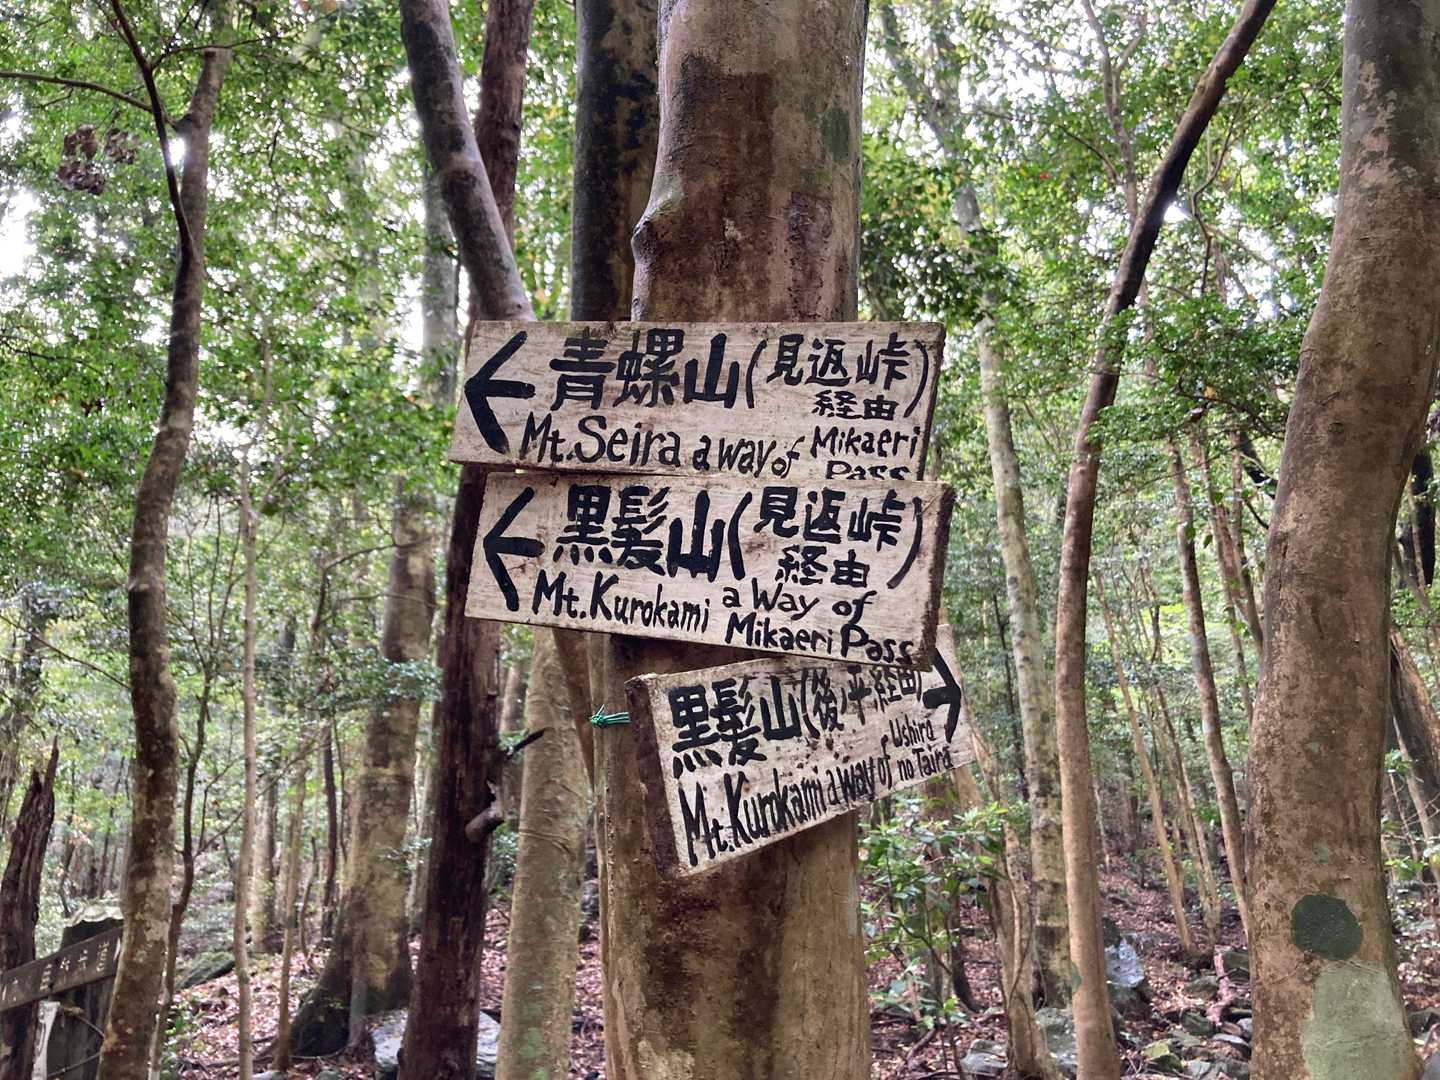 青螺山(見返峠)
経由
Mt.Seira a way of Mikaeri
Pass
黒髪山(見返峠)
経由
Mt.Kurokami a Way of
Mikaeri Pass
黒髪山(後ノ平経由)
Ushira
Mt.Kurokami a way of no Taira